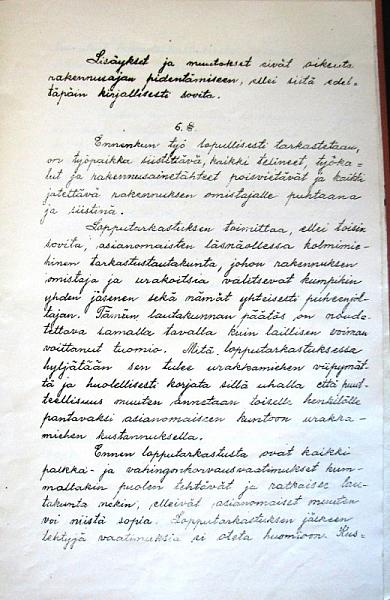 Lisäykset ja muutokset eivät oikeuta
rakennusajan pidentämiseen, ellei siitä edel-
täpäin kirjallisesti sovita.
6. §.
Ennenkun työ lopullisesti tarkastetaan,
on työpaikka siistittävä, kaikki telineet, työka-
lut ja rakennusainetähteet poisvietävät ja kaikki
jätettävä rakennuksen omistajalle puhtaana
ja siistinä.
Lopputarkastuksen toimittaa, ellei toisin
sovita, asianomaisten läsnäollessa kolmimie-
hinen tarkastustautakunta, johon rakennuksen
omistaja ja urakoitsia valitsevat kumpikin
yhden jäsenen sekä nämät yhteisesti puheenjoh-
tajan. Tämän lautakunnan päätös on nouda-
tettava samalla tavalla kuin laillisen voiman
voittanut tuomio. Mitä lopputarkastuksessa
hyljätään sen tulee urakkamiehen viipymät-
tä ja huolellisesti korjata sillä uhalla että puut-
teellisuus muuten annetaan toiselle henkilölle
pantavaksi asianomaiseen kuntoon urakka-
miehen kustannuksella.
Ennen lopputarkastusta ovat kaikki
palkka- ja vahingonkorvausvaatimukset kum-
maltakin puolen tehtävät ja ratkaisee lau-
takunta nekin, elleivät asianomaiset muuten
voi niistä sopia. Lopputarkastuksen jälkeen
tehtyjä vaatimuksia ei oteta huomioon. Kus-